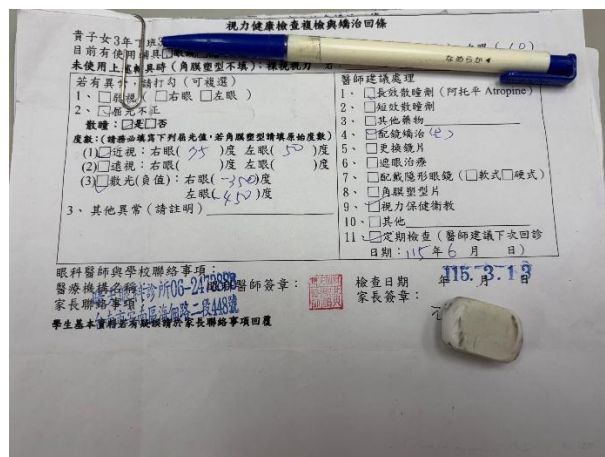 視力健康檢查複檢與矯治回條
貴子女3年
目前有使用輔具
未使用上述輔具時(角膜塑型不填):裸視視力
なめらか
若有異常,請打勾(可複選)
1、□弱視(□右眼 □左眼)
2、☑屈光不正
散瞳:☑是□否
度數:(請務必填寫下列屈光值,若角膜塑型請填原始度數)
(1)☑近視:右眼(75)度 左眼(50)度
(2)□遠視:右眼( )度 左眼( )度
(3)☑散光(負值):右眼(-350)度
左眼(-450)度
3、其他異常(請註明)
醫師建議處理
1、☑長效散瞳劑(阿托平 Atropine)
2、□短效散瞳劑
3、□其他藥物
4、☑配鏡矯治
5、□更換鏡片
6、□遮眼治療
7、□配戴隱形眼鏡(□軟式□硬式)
8、□角膜塑型片
9、☑視力保健衛教
10、□其他
11、☑定期檢查(醫師建議下次回診
日期:115年6月 日)
眼科醫師與學校聯絡事項:
醫療機構名稱 診所06-2472888 眼科醫師簽章:
家長聯絡事項: 二段448號
學生基本資料若有缺誤請於家長聯絡事項回覆
檢查日期 年 月 日
115.3.13
家長簽章: